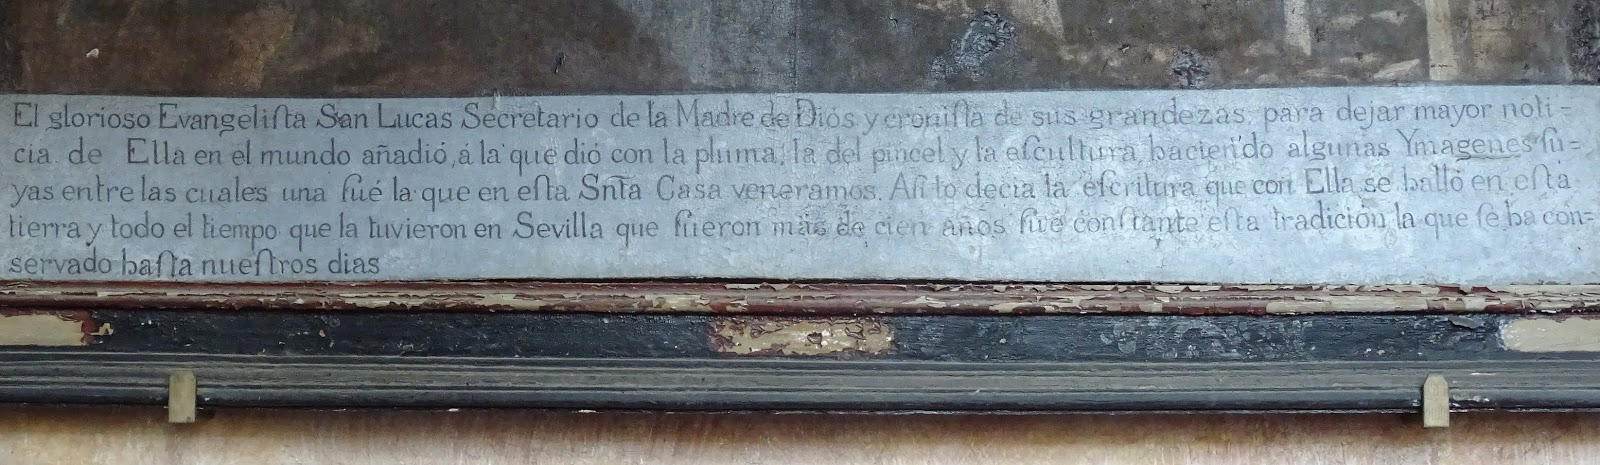 El glorioso Evangeliſta San Lucas Secretario de la Madre de Dios y croniſta de sus grandezas, para dejar mayor noti=
cia de Ella en el mundo añadió, á la que dió con la pluma, la del pincel y la eſcultura, haciendo algunas Ymagenes ſu=
yas entre las cuales una fué la que en eſta Snta Casa veneramos. Aſi lo decia la eſcritura que con Ella se halló en eſta
tierra y todo el tiempo que la tuvieron en Sevilla que fueron más de cien años fué conſtante eſta tradición la que ſe ha con=
servado haſta nueſtros dias